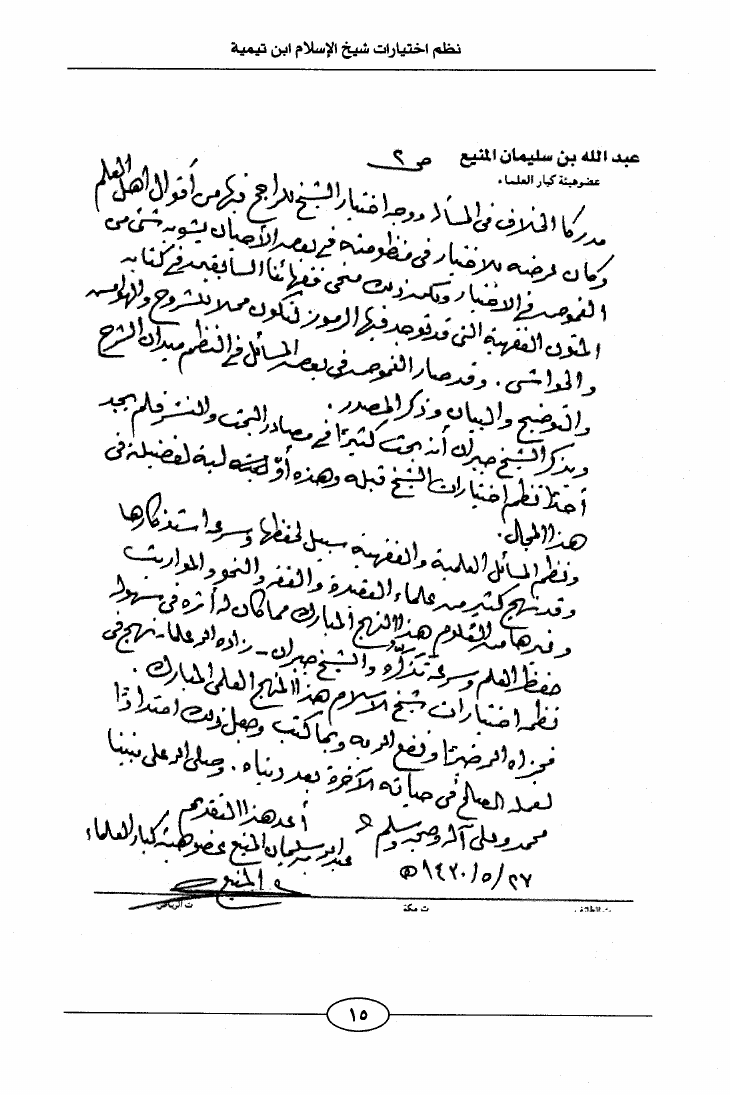 نظم اختيارات شيخ الإسلام ابن تيمية
عبد الله بن سليمان المنيع ص ٢
عضو هيئة كبار العلماء
مدركا الخلاف في المسألة ووجه اختيار الشيخ للراجح فيها من أقوال أهل العلم
وكان عرضه للاختيار في منظومته في بعض الأحيان يشوبه شيء من
الغموض في الاختيار ولكن ذلك منحى فقهائنا السابقين في كتابه
المتون الفقهية التي قد توجد فيها الرموز لتكون محلا للشروح والهوامش
والحواشي . وقد صار الغموض في بعض المسائل في النظم ميدان الشرح
والتوضيح والبيان وذكر المصدر .
ويذكر الشيخ جبران أنه بحث كثيرًا في مصادر البحث والنشر فلم يجد
أحدًا نظم اختيارات الشيخ قبله وهذه أول لبنة لفضيلته في
هذا المجال .
ونظم المسائل العلمية والفقهية سبيل لحفظها وسرعة استذكارها
وقد نهج كثير من علماء العقيدة والفقه والنحو والمواريث
وغيرها من العلوم هذا النهج المبارك مما كان له أثره في سهولة
حفظ العلم وسرعة تذكره والشيخ جبران - زاده الله علما - نهج في
نظم اختيارات شيخ الإسلام هذا المنهج العلمي المبارك .
فجزاه الله خيرًا ونفع الله به وبما كتب وجعل ذلك امتدادًا
لعمله الصالح في حياته الآخرة بعد دنياه . وصلى الله على نبينا
محمد وعلى آله وصحبه وسلم
أعد هذا التقديم
عبد الله بن سليمان المنيع عضو هيئة كبار العلماء
٢٧ / ٥ / ١٤٢٠ هـ
المنيع
ت الطائف ت مكة ت الرياض
١٥